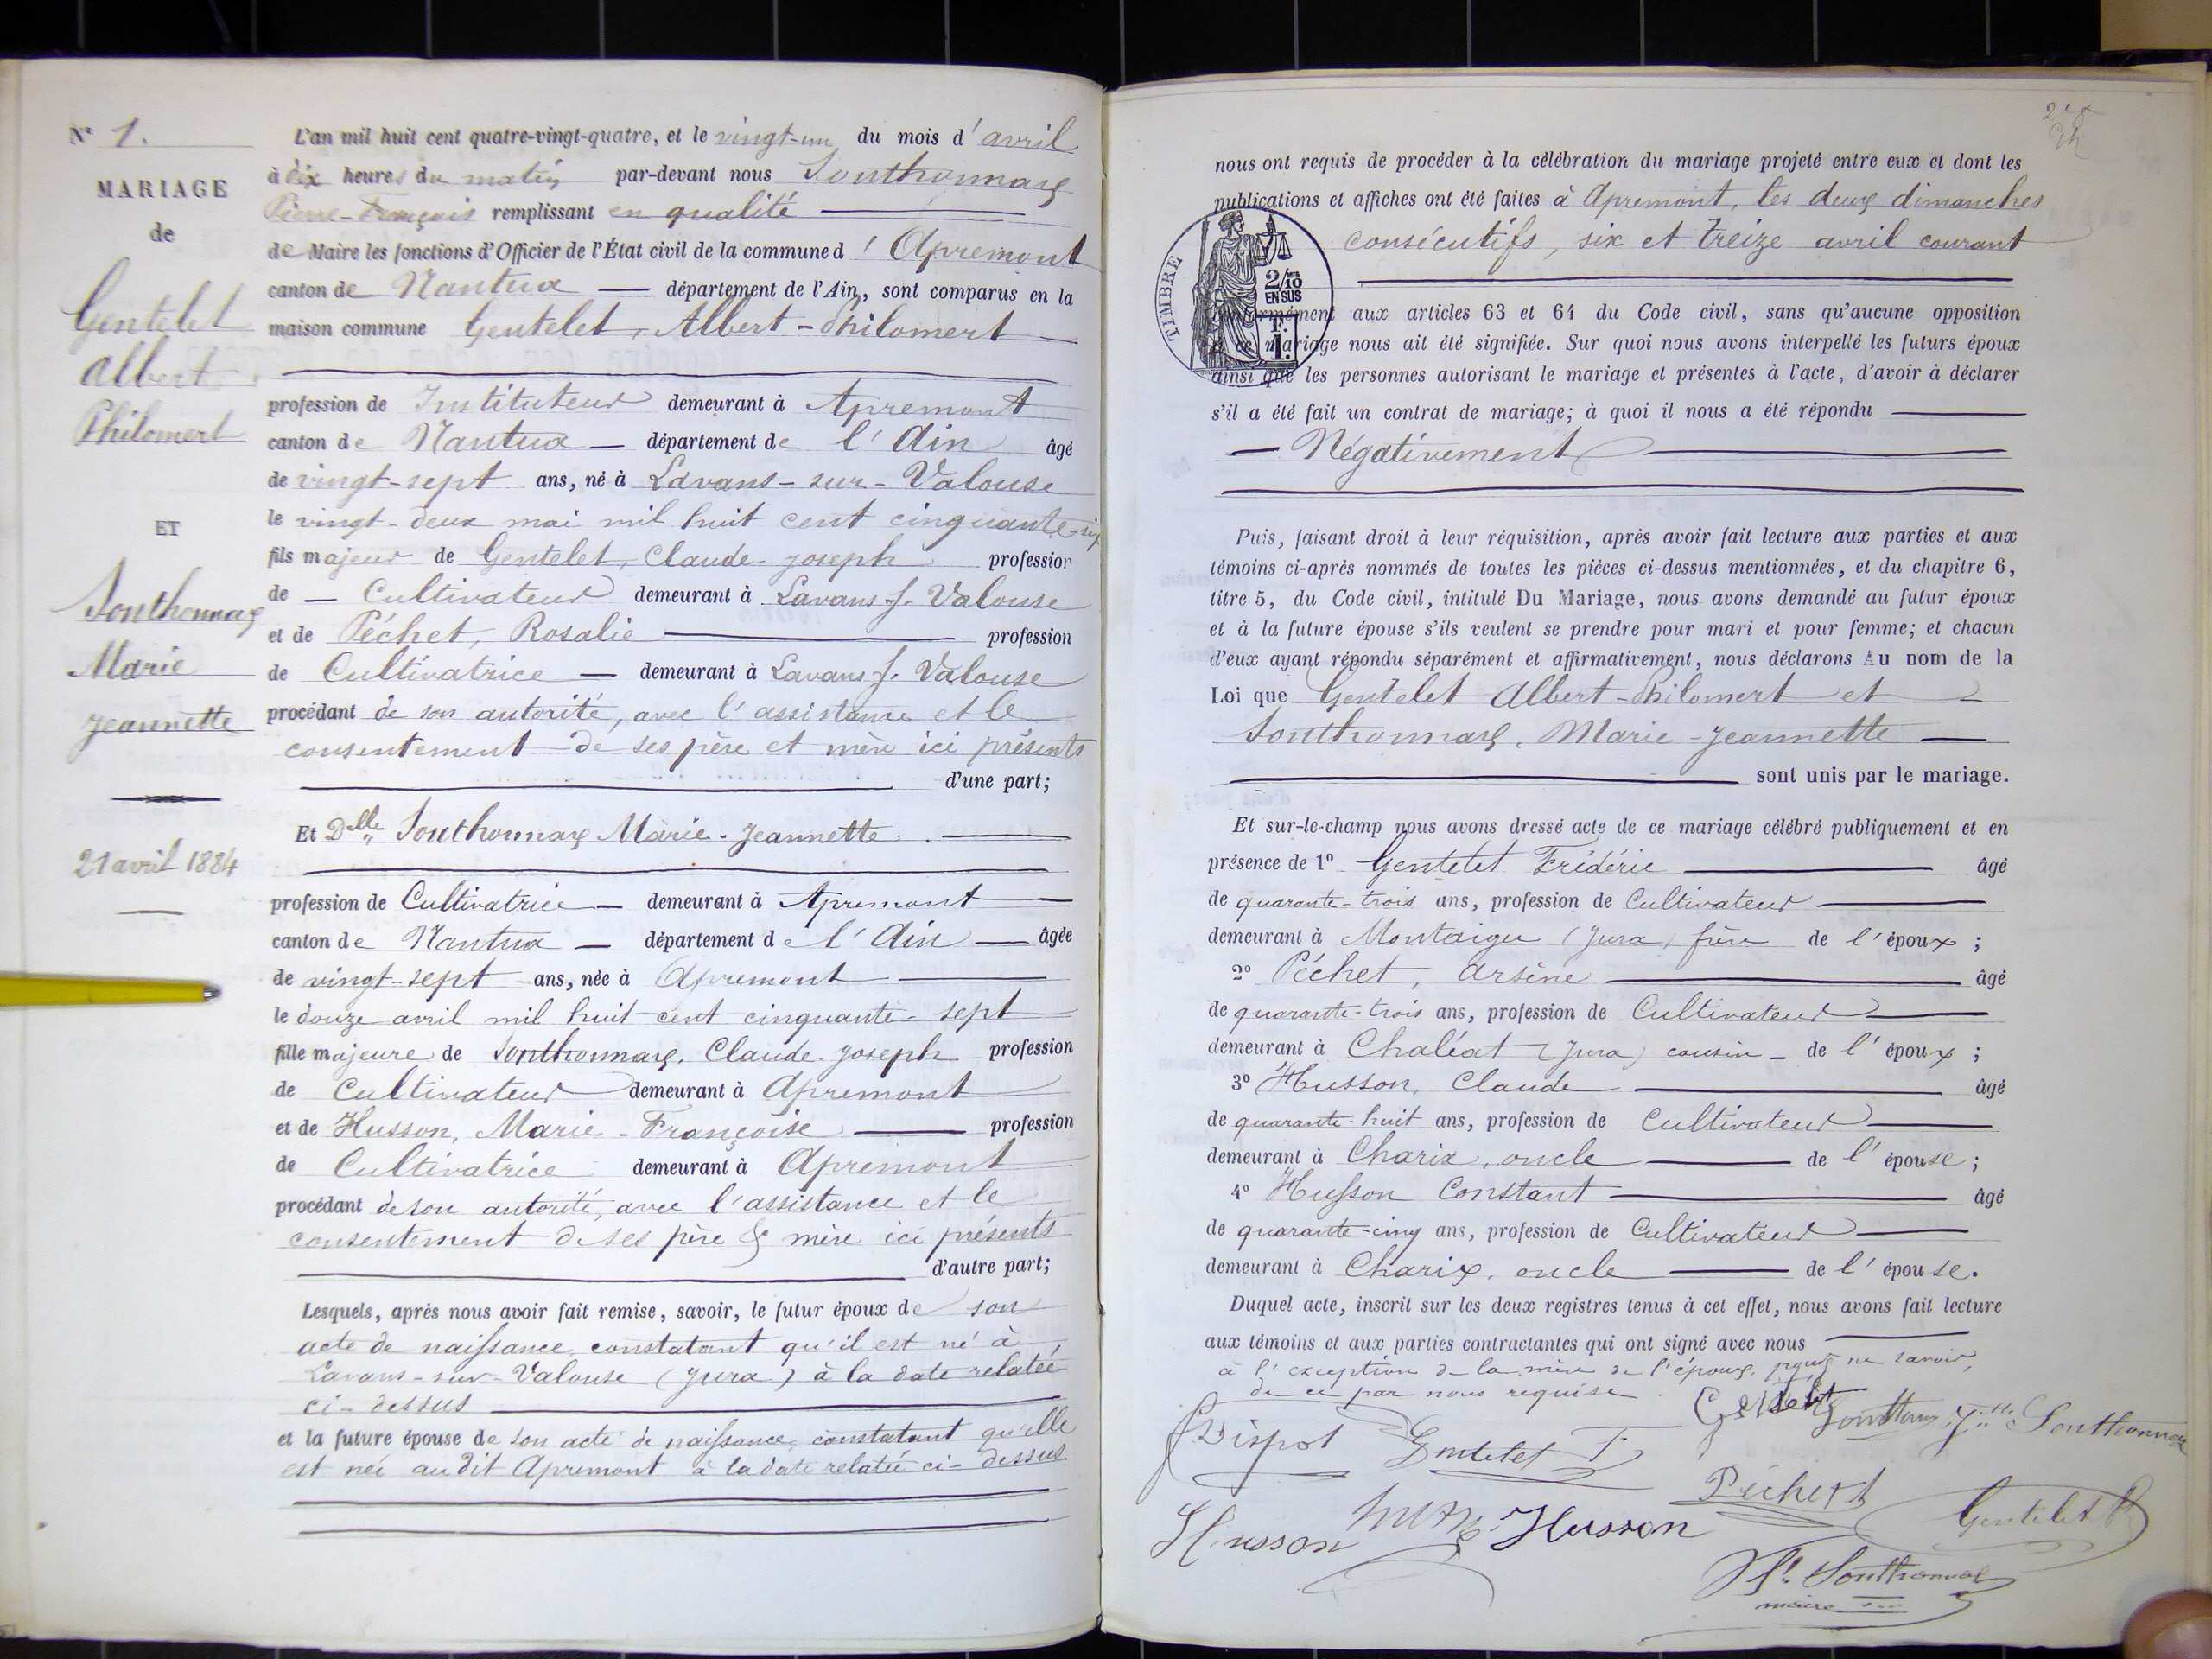 N° 1.
MARIAGE
de
Gentelet
Albert
Philomert
ET
Southonnax
Marie
Jeannette
21 avril 1884
L'an mil huit cent quatre-vingt-quatre, et le vingt-un du mois d'avril
à dix heures du matin par-devant nous Southonnax
Pierre-François remplissant en qualité
de Maire les fonctions d'Officier de l'État civil de la commune d'Apremont
canton de Nantua département de l'Ain, sont comparus en la
maison commune Gentelet, Albert-Philomert
profession de Instituteur demeurant à Apremont
canton de Nantua département de l'Ain âgé
de vingt-sept ans, né à Lavans-sur-Valouse
le vingt-deux mai mil huit cent cinquante-six
fils majeur de Gentelet, Claude-Joseph profession
de Cultivateur demeurant à Lavans-s. Valouse
et de Péchet, Rosalie profession
de Cultivatrice demeurant à Lavans s. Valouse
procédant de son autorité, avec l'assistance et le
consentement de ses père et mère ici présents
d'une part;
Et Delle Southonnax Marie-Jeannette.
profession de Cultivatrice demeurant à Apremont
canton de Nantua département de l'Ain âgée
de vingt-sept ans, née à Apremont
le douze avril mil huit cent cinquante-sept
fille majeure de Southonnax, Claude-Joseph profession
de Cultivateur demeurant à Apremont
et de Husson, Marie-Françoise profession
de Cultivatrice demeurant à Apremont
procédant de son autorité, avec l'assistance et le
consentement de ses père & mère ici présents
d'autre part;
Lesquels, après nous avoir fait remise, savoir, le futur époux de son
acte de naissance, constatant qu'il est né à
Lavans-sur-Valouse (Jura) à la date relatée
ci-dessus
et la future épouse de son acte de naissance, constatant qu'elle
est née audit Apremont à la date relatée ci-dessus
nous ont requis de procéder à la célébration du mariage projeté entre eux et dont les
publications et affiches ont été faites à Apremont, les deux dimanches
consécutifs, six et treize avril courant
TIMBRE
2/10
EN SUS
T.
I.
conformément aux articles 63 et 64 du Code civil, sans qu'aucune opposition
à ce mariage nous ait été signifiée. Sur quoi nous avons interpellé les futurs époux
ainsi que les personnes autorisant le mariage et présentes à l'acte, d'avoir à déclarer
s'il a été fait un contrat de mariage; à quoi il nous a été répondu
Négativement
Puis, faisant droit à leur réquisition, après avoir fait lecture aux parties et aux
témoins ci-après nommés de toutes les pièces ci-dessus mentionnées, et du chapitre 6,
titre 5, du Code civil, intitulé Du Mariage, nous avons demandé au futur époux
et à la future épouse s'ils veulent se prendre pour mari et pour femme; et chacun
d'eux ayant répondu séparément et affirmativement, nous déclarons Au nom de la
Loi que Gentelet Albert-Philomert et
Southonnax, Marie-Jeannette
sont unis par le mariage.
Et sur-le-champ nous avons dressé acte de ce mariage célébré publiquement et en
présence de 1° Gentelet Frédéric âgé
de quarante-trois ans, profession de Cultivateur
demeurant à Montaigu (Jura) frère de l'époux;
2° Péchet, Arsène âgé
de quarante-trois ans, profession de Cultivateur
demeurant à Chaléat (Jura) cousin de l'époux;
3° Husson, Claude âgé
de quarante-huit ans, profession de Cultivateur
demeurant à Charix, oncle de l'épouse;
4° Husson Constant âgé
de quarante-cinq ans, profession de Cultivateur
demeurant à Charix, oncle de l'épouse.
Duquel acte, inscrit sur les deux registres tenus à cet effet, nous avons fait lecture
aux témoins et aux parties contractantes qui ont signé avec nous
à l'exception de la mère de l'époux, pour ne savoir,
de ce par nous requise
Gentelet
Jtte Southonnax
Dispot Gentelet F.
Péchet A
Gentelet
Husson Husson
Southonnax
maire